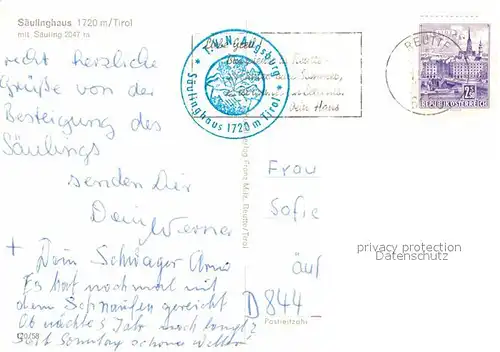 Säulinghaus 1720 m/Tirol
mit Säuling 2047 m
recht herzliche
Grüße von der
Besteigung des
Säulings
senden Dir
Dein Werner
+ Dein Schwager Arno
Es hat nochmal mit
dem Schnaufen gereicht
Ob nächstes Jahr noch langt?
Seit Sonntag schönes Wetter
T.V.N. Augsburg
* Säulinghaus 1720 m Tirol *
REUTTE
2S
REPUBLIK ÖSTERREICH
Verlag Franz Milz, Reutte/Tirol
Frau
Sofie
auf
D 844
Postleitzahl
privacy protection
Datenschutz